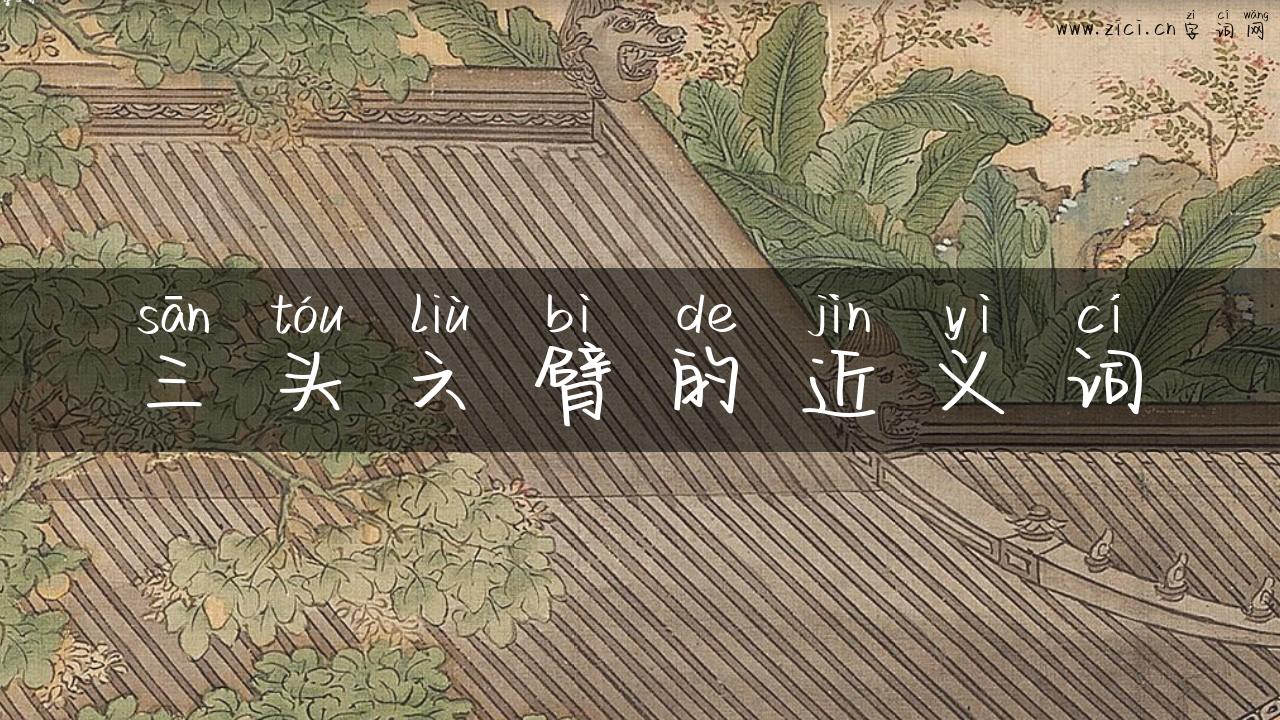 zì cí wǎng
www.zici.cn 字词网
sān tóu liù bì de jìn yì cí
三头六臂的近义词